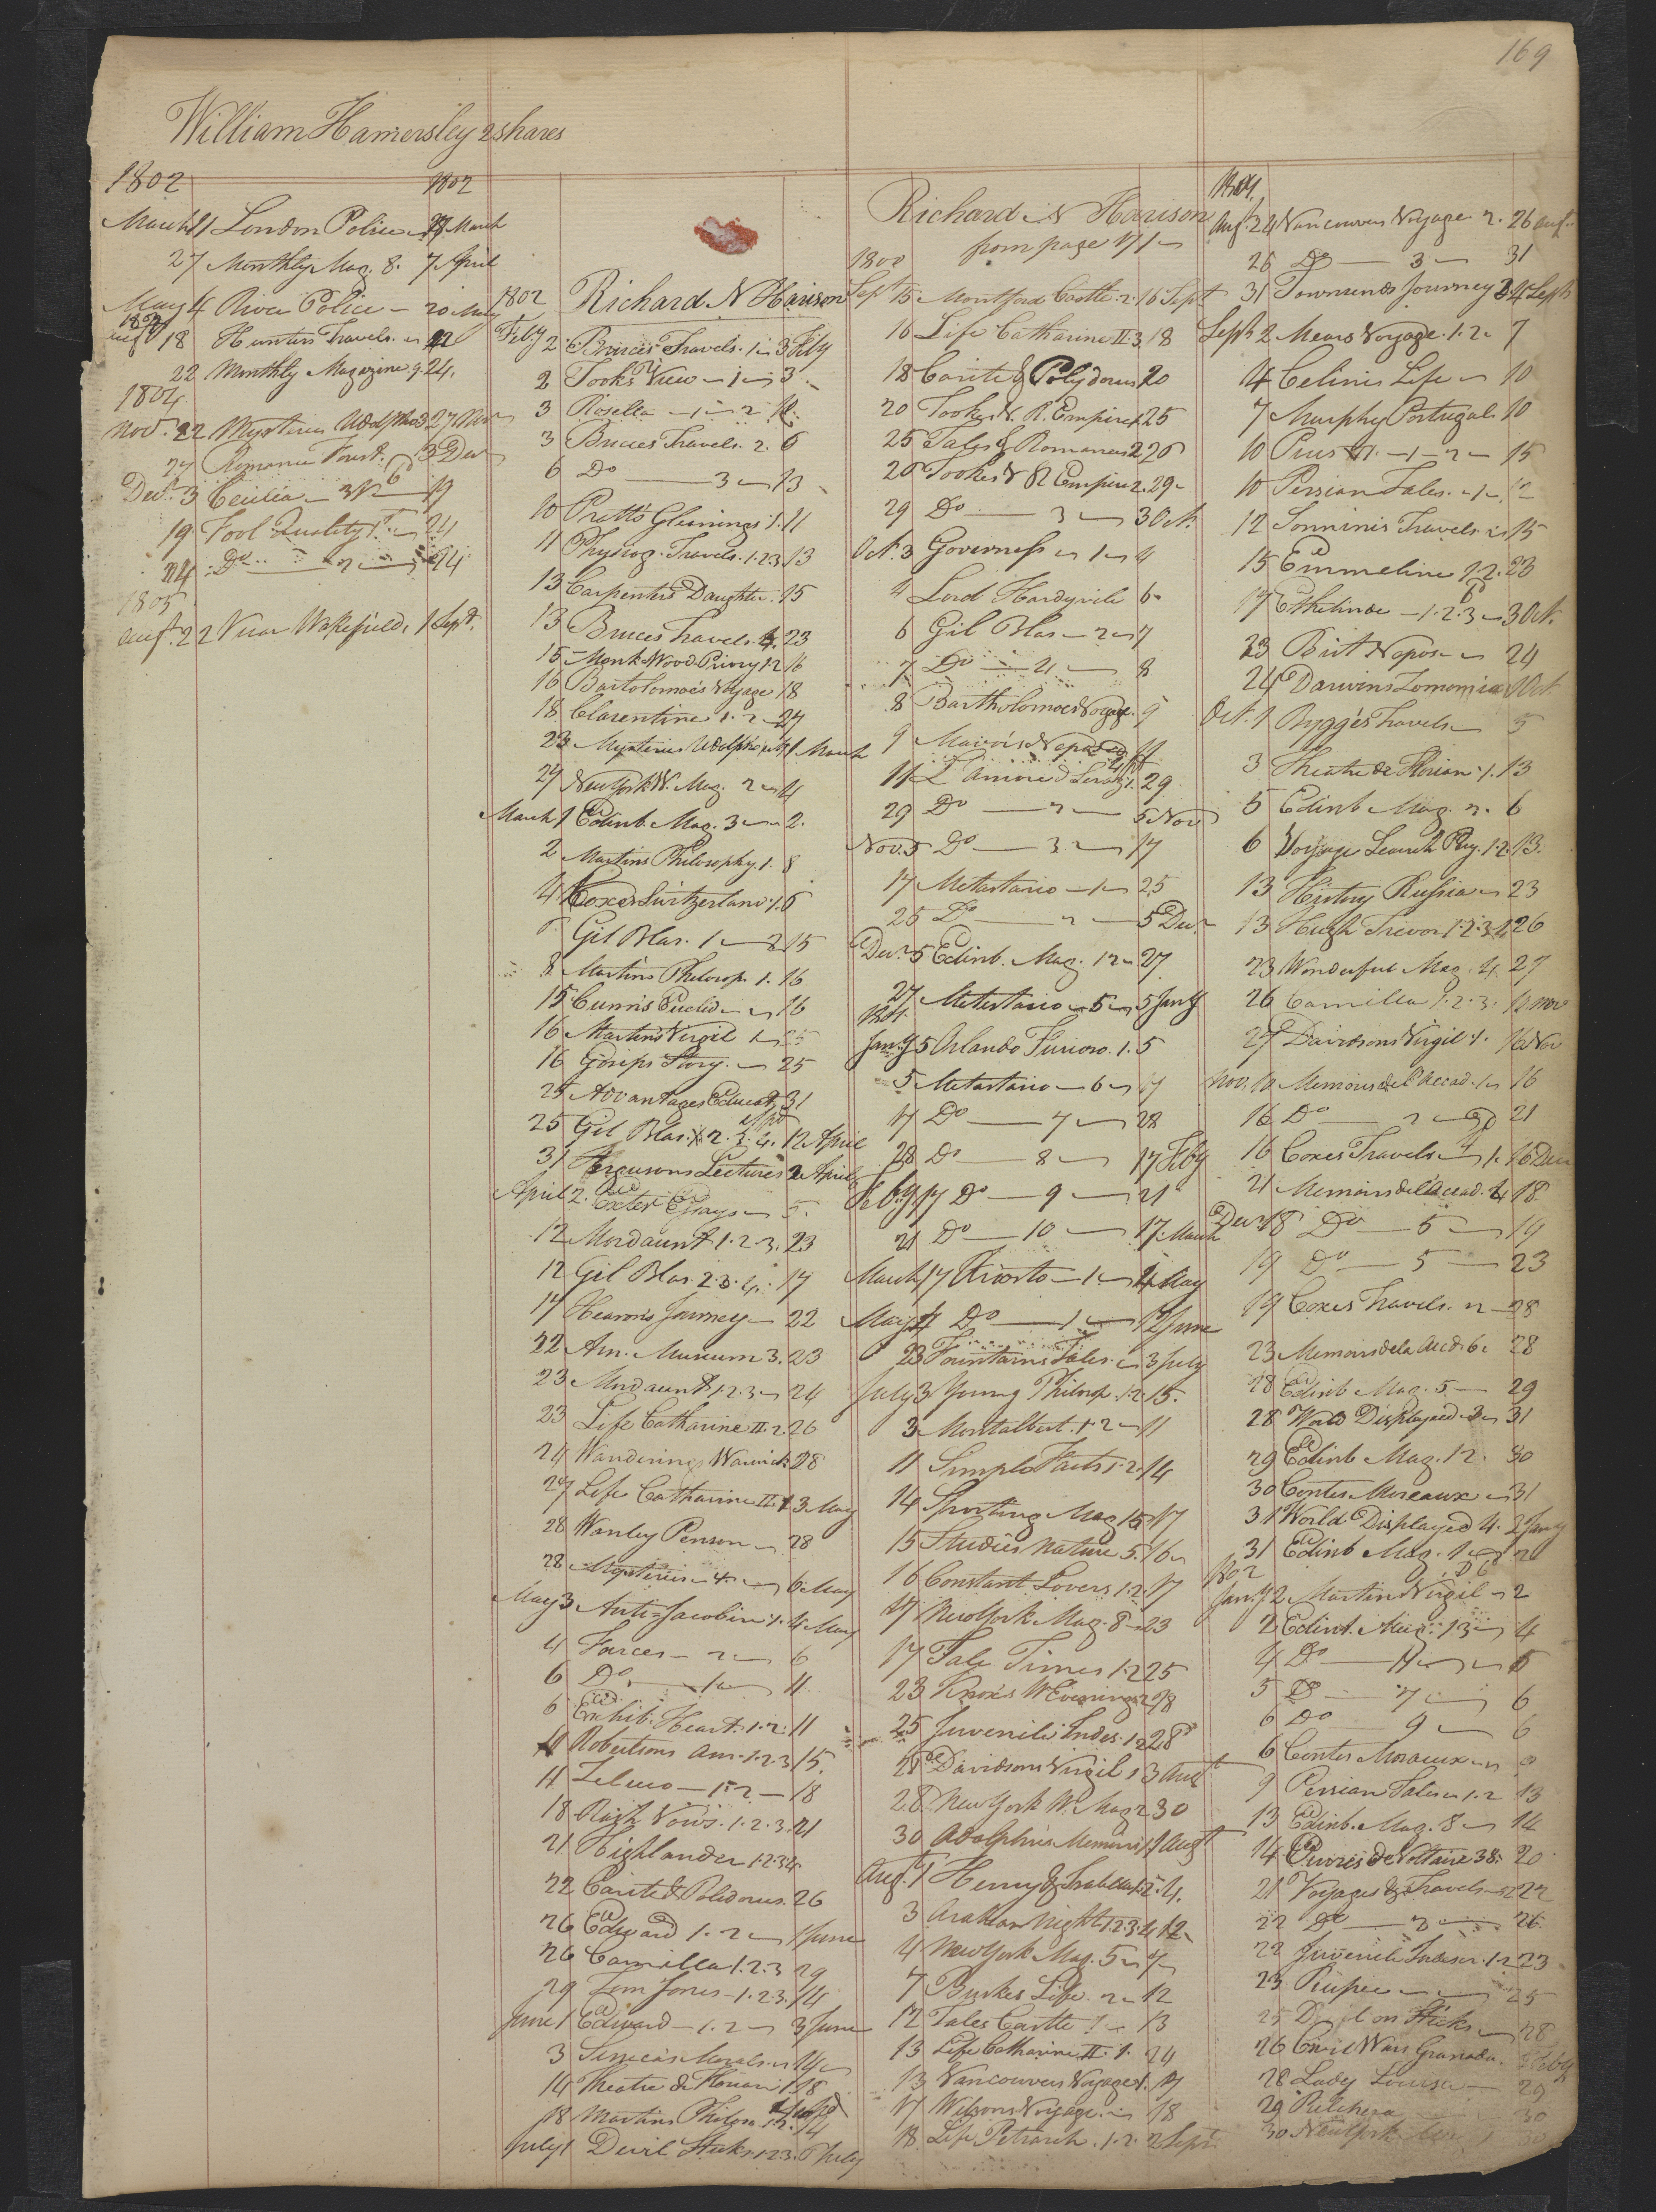 169
William Hamersley 2 shares
1802 1802
March 21 London Police 27 March
27 Monthly Mag. 8. 7 April
May 4 River Police 20 May
18 Hunters Travels 22
22 Monthly Magazine 9. 24.
1804
Nov. 22 Mysteries Udolpho 3 27 Nov
27 Romance Forest. 3 Dec
Decr. 3 Cecilia 3 17
19 Fool Quality 1 24
24 Do 2 24
1805
Augt. 22 Vicar Wakefield, 1 Sept.
1802 Richard N Harison
Feby 2 Bruces Travels. 1 3 Feby
2 Tooks View 1 3
3 Rosella 1 2 10
3 Bruces Travels. 2. 6
6 Do 3 13
10 Pratts Gleanings 1. 11
11 Physiog. Travels. 1.2.3 13
13 Carpenters Daughter. 15
13 Bruces Travels. 4. 23
15 Monk Wood Priory 1.2 16
16 Bartolomeo's Voyage 18
18 Clarentine 1. 2 27
23 Mysteries Udolpho 1 March
27 New York W. Mag. 2 4
March 1 Edinb. Mag. 3 2.
2 Martins Philosophy 1. 8
4 Coxes Switzerland 1. 6
6 Gil Blas. 1 15
8 Martins Philosop. 1. 16
15 Cunns Euclid 16
16 Martins Virgil 1 25
16 Gossips Story. 25
25 Advantages Educat. 31
25 Gil Blas. 1. 2. 3. 4. 12 April
31 Fergusons Lectures 2 April
April 2. Exeter Essays 5.
12 Mordaunt 1.2.3. 23
12 Gil Blas. 2.3.4. 17
17 Hearons Journey 22
22 Am. Museum 3. 23
23 Mordaunt 1.2.3 24
23 Life Catharine II. 2. 26
24 Wanderings Warwick 28
27 Life Catharine II. 1 3 May
28 Wanley Penson 28
28 Mysteries 4. 6 May
May 3 Anti-Jacobin 1. 4 May
4 Farces 2 6
6 Do 1 11
6 Exhib. Heart. 1.2. 11
10 Robertsons Am. 1.2.3 15.
11 Zeluco 1. 2 18
18 Rash Vows. 1.2.3. 21
21 Highlander 1.2 24
22 Carite & Polidorus. 26
26 Edward 1. 2 1 June
26 Camilla 1.2.3 29
29 Tom Jones 1.2.3. 14
June 1 Edward 1. 2 3 June
3 Seneca's Morals 14
14 Theatre de Florian 1 18
18 Martins Philoso. 1.2. 14
July 1 Devil Sticks 1.2.3. 8 July
Richard N Harison
from page 171
1800
Sept 15 Montford Castle. 2. 16 Sept
16 Life Catharine II. 3 18
18 Carite & Polydorus 20
20 Tookes V. R. Empire 1 25
25 Tales & Romances 2 26
26 Tookes V R Empire 2. 29
29 Do 3 3 Oct.
Oct. 3 Governess 1 4
4 Lord Hardyvile 6
6 Gil Blas 2 7
7 Do 4 8
8 Bartholomeos Voyage. 9
11 L'Amore 1. 29
29 Do 2 5 Nov
Nov. 5 Do 3 17
17 Metastasio 1 25
25 Do 2 5 Decr
Decr 5 Edinb. Mag. 12 27
27 Metastasio 5 5 Jany
1801.
Jany 5 Orlando Furioso. 1. 5
5 Metastasio 6 17
17 Do 7 28
28 Do 8 17 Feby
Feby 17 Do 9 21
21 Do 10 17 March
March 17 Ariosto 1 4 May
May 4 Do 1 12 June
23 Fountains Tales 3 July
July 3 Young Philosop. 1.2. 15.
3 Montalbert. 1.2 11
11 Simple Facts 1.2 14
14 Sporting Mag 15 17
15 Studies Nature 5. 16
16 Constant Lovers 1.2. 17
17 New York Mag. 8 23
17 Tale Times 1.2 25
23 Knox's W Evenings 2 28
25 Juvenile Indis. 1.2 28
28 Davidsons Virgil 1 3 Aust
28 New York W. Mag 2 30
30 Adolphus Memoirs 1 1 Augt
Aug. 1 Henry & Isabella 1.2. 4.
3 Arabian Nights 1.2.3.4 12
4 New York Mag. 5 7
7 Burkes Life. 2 12
12 Tales Castle 1 13
13 Life Catharine II. 1. 24
13 Vancouvers Voyage 1. 17
17 Wilsons Voyage. 18
18 Life Petrarch. 1. 2. 2 Sept
1801.
Aug. 24 Vancouvers Voyage 2. 26 Aug.
26 Do 3 31
31 Townsends Journey 2 4 Sept
Sept 2 Mears Voyage. 1.2 7
4 Celinis Life 10
7 Murphy Portugal. 10
10 Pius VI. 1 2 15
10 Persian Tales. 1 12
12 Sonninis Travels 15
15 Emmeline 1.2. 23
17 Ethelinde 1.2.3 3 Oct.
23 Brit Nepos 24
24 Darwins Zoonomia 1 Oct.
Oct. 1 Bygges Travels 5
3 Theatre de Florian 1. 13
5 Edinb Mag. 2. 6
6 Voyage Search Pey. 1.2. 13.
13 History Russia 23
13 Hugh Trevor 1.2.3.4 26
23 Wonderful Mag. 4. 27
26 Camilla 1.2.3. 10 Nov
27 Davidsons Virgil 1. 16 Nov
Nov. 10 Memoirs de l'Accad. 1 16
16 Do 2 21
16 Coxes Travels 1. 16 Dec
21 Memoirs de l'Accad. 4 18
Decr 18 Do 5 19
19 Do 5 23
19 Coxes Travels. 2 28
23 Memoirs de la Acd. 6. 28
28 Edinb Mag. 5 29
28 World Displayed 3 31
29 Edinb Mag. 12. 30
30 Contes Moreaux 31
31 World Displayed 4. 2 Jany
31 Edinb Mag. 1 2
1802
Jany 2. Martins Virgil 2
2 Edinb. Mag. 13 4
4 Do 11 5
5 Do 7 6
6 Do 9 6
6 Contes Moraux 9
9 Persian Tales 1.2 13
13 Edinb. Mag. 8 14
14 Œuvres de Voltaire 38. 20
21 Voyages & Travels 22
22 Do 3 26
22 Juvenile Indiscr. 1.2 23
23 Rupee 25
25 Devil on Sticks 28
26 Civil Wars Granada. 2 Feby
28 Lady Louisa 29
29 30
30 New York 30